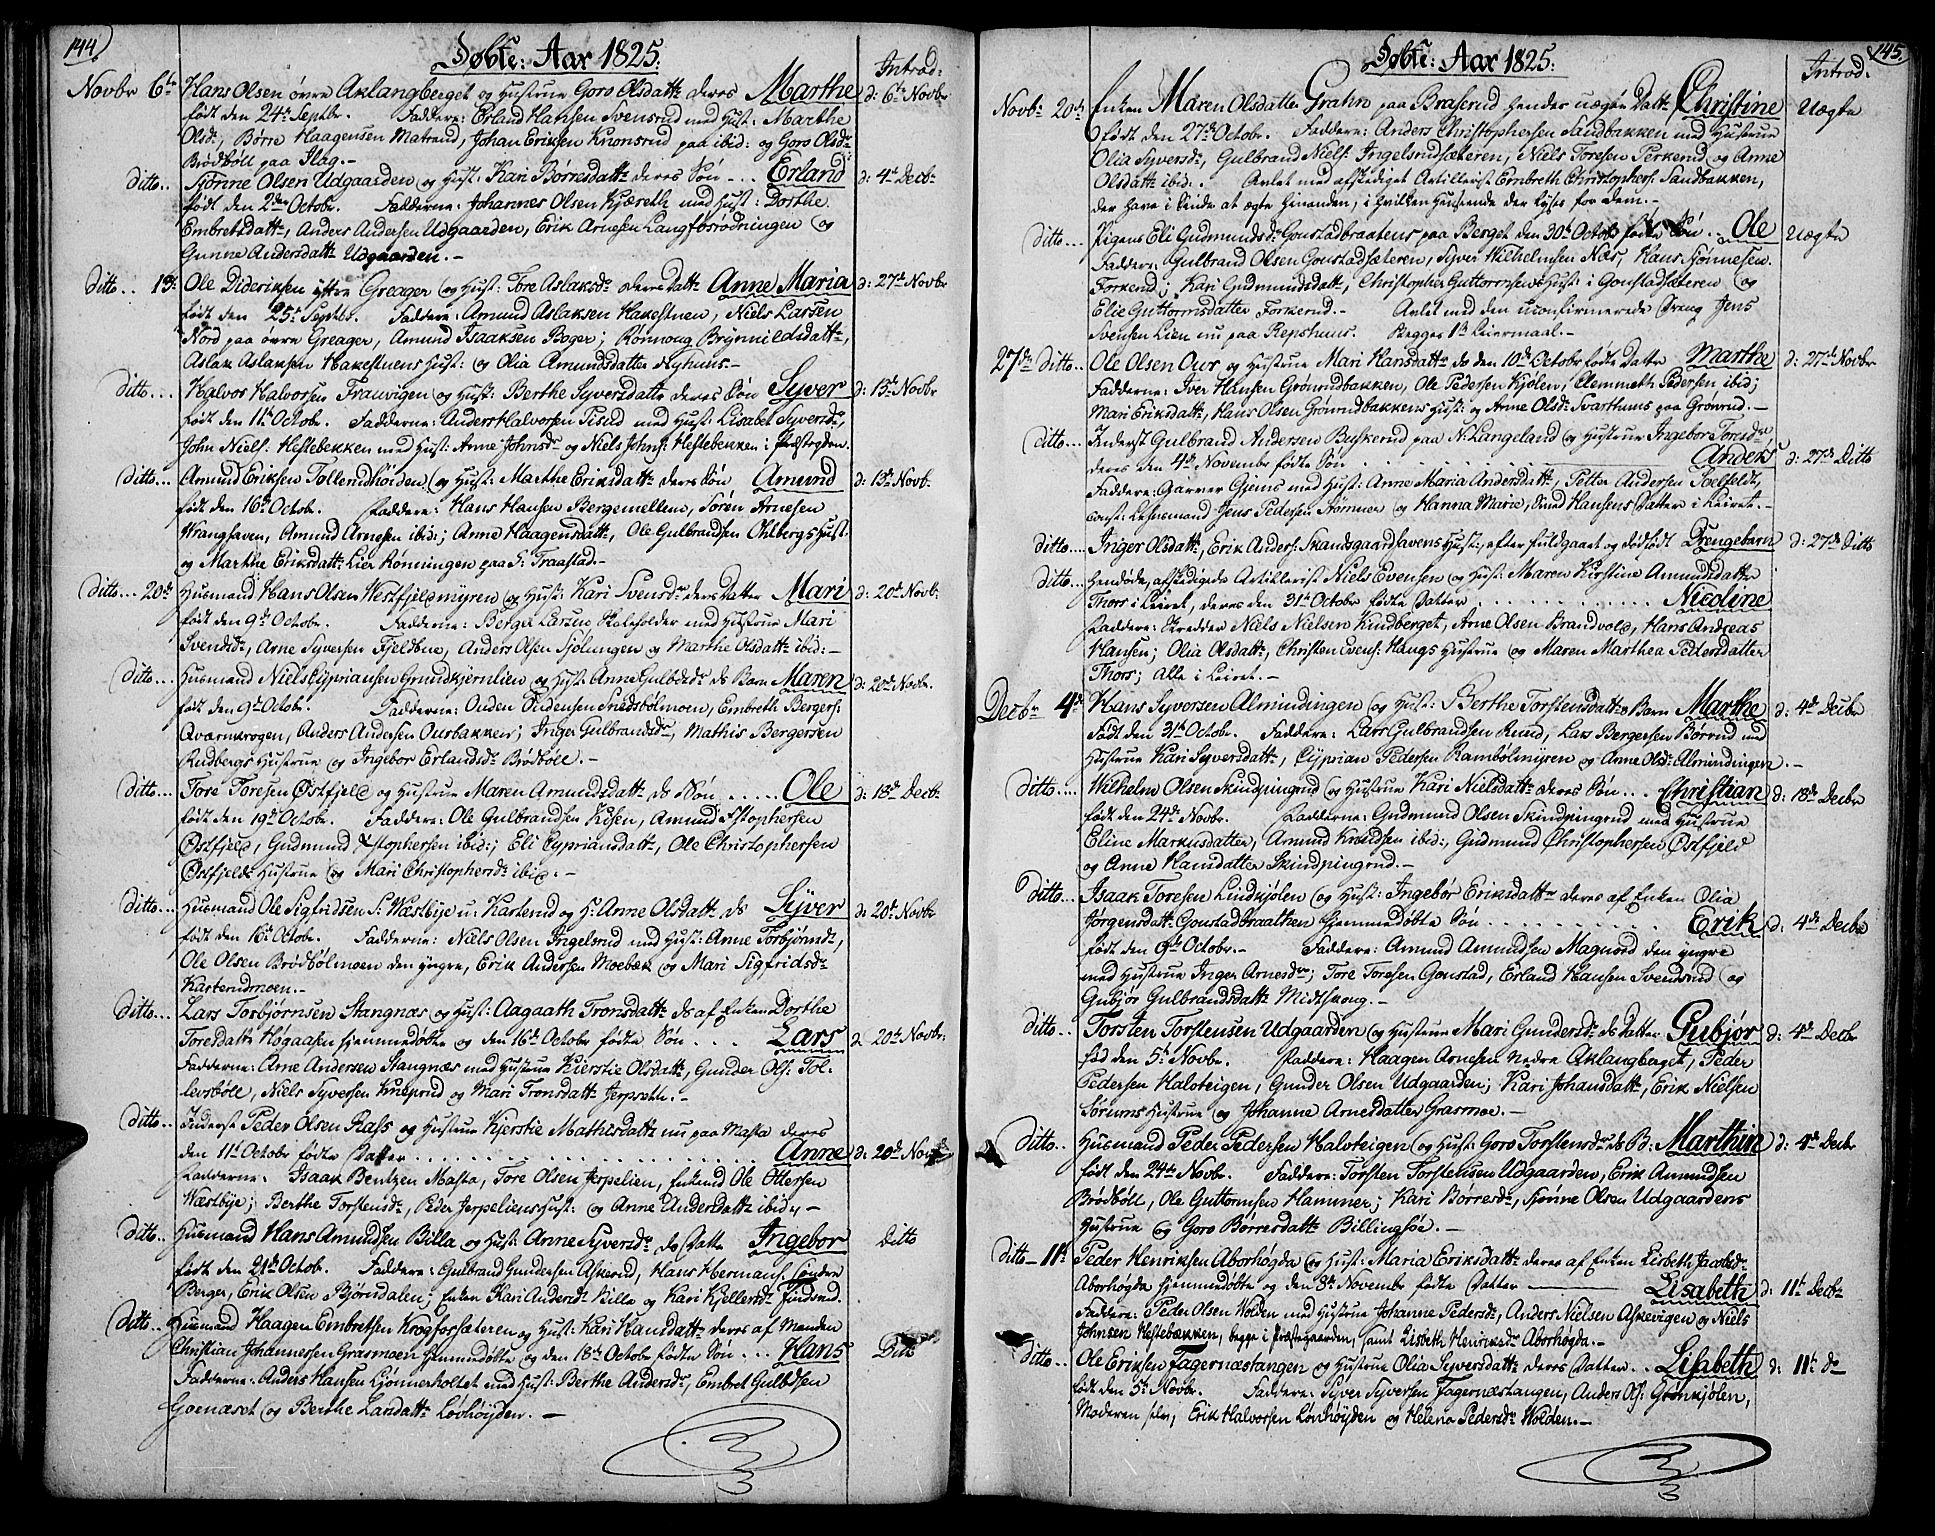 144.
Døbte: Aar 1825.
Introd:
Novbr 6te Hans Olsen øvre Aklangberget og Hustrue Goro Olsdattr deres Marthe d: 6te Novbr
født den 24de Septbr. Faddere: Erland Hansen Svensrud med Hust: Marthe
Olsdr, Børre Haagensen Matrand, Johan Eriksen paa ibid: og Goro Olsdr
Brødbøll paa Ilag.-
Ditto.. Sjønne Olsen Udgaarden og Hust: Kari Børresdattr deres Søn ... Erland d: 4de Decbr
født den 2den Octobr. Fadderne: Johannes Olsen Kjæreth med Hust: Dorthe
Embretsdattr, Anders Andersen Udgaarden, Erik Arnesen og
Gunne Andersdattr Udgaarden.-
Ditto.. 13. Ole Dideriksen Greager og Hust: Tore Aslaksdr deres Dattr Anne Maria d: 27de Novbr
født den 25de Septbr. Faddere: Amund Aslaksen Hakestuen, Niels Larsen
Nord paa øvre Greager, Amund Isaaksen Boger; Rønnoug Brynnildsdattr,
Aslak Aslaksen Hakestuens Hust: og Olia Amundsdatter Nyhuus.-
Ditto... Halvor Halvorsen Trauvigen og Hust: Berthe Syversdattr deres Søn Syver d: 13de Novbr
født den 11te Octobr. Faddere: Anders Halvorsen med Hust: Lisabet Syversdr,
John Niels: Hestebekken med Hust: Anne Johnsdr og Niels Johns: Hestebekken i Præstegden.
Ditto... Amund Eriksen og Hust: Marthe Eriksdattr deres Søn Amund d: 13de Novb.
født den 16de Octobr. Faddere: Hans Hansen Bergemellem, Søren Arnesen
Wranghaven, Amund Arnesen ibid:; Anne Haagensdattr, Ole Gulbrandsen Ohlbergs Hust:
og Marthe Eriksdattr Lier Rønningen paa S: Traastad.-
Ditto... 20de Husmand Hans Olsen Westfjeldmyren og Hust: Kari Svensdr deres Datter Mari d: 20de Novb:
født den 9de Octobr. Fadderne: Berger Larsen Skaleholder med Hustrue Mari
Svendsdr, Arne Syversen Fjeldbue, Anders Olsen Sjølungen og Marthe Olsdattr ibid:-
Ditto... Husmand Niels Cypriansen Grundkjernlien og Hust: Anne Gulbdsdr ds Barn Maren d: 20de Novbr.
født den 9de Octobr. Fadderne: Ouden Oudensen Snedsbølmoen, Embreth Bergers:
Qvarnkrogen, Anders Andersen Ourbakken; Inger Gulbrandsdr, Mathis Bergersen
Rudbergs Hustrue og Ingebor Erlandsdr Brødbøll.-
Ditto... Tore Toresen Østfjeld og Hustrue Maren Amundsdattr ds Søn ..... Ole d: 18de Decbr
født den 19de Octobr. Faddere: Ole Gulbrandsen Kusen, Amund Xstophersen
Østfjeld, Gudmund Xstophersen ibid:; Eli Cypriansdattr, Ole Christophersen
Østfjelds Hustrue og Mari Christophersdr ibid.-
Ditto... Husmand Ole Sigfridsen S: Wæstbye u: Karterud og H: Anne Olsdattr ds Syver d: 20de Novbr
født den 16de Octobr. Fadderne: Niels Olsen Ingelsrud med Hust: Anne Torbjørnsdr,
Ole Olsen Brødbølmoen den yngre, Erik Andersen Moebæk og Mari Sigfridsdr
Karterudmoen.-
Ditto... Lars Torbjørnsen Stangnæs og Hust: Aagaath Tronsdattr ds af Enken Dorthe
Toresdattr Høgaasen hjemmedøbte og den 16de Octobr fødte Søn ... Lars d: 20de Novbr:
Fadderne: Arne Andersen Stangnæs med Hustrue Kierstie Olsdattr, Gunder Ols: Tol-
levsbøll, Niels Syversen Kneprud og Mari Tronsdattr Jerpseth.-
Ditto... Inderst Peder Olsen Rass og Hustrue Kjerstie Mathisdattr nu paa Masta deres
den 11te Octobr fødte Datter .................... Anne d: 20de Novbr
Fadderne: Isaak Bentzen Masta, Tore Olsen Jerpelien, Enkemd Ole Ottersen
Wæstbye; Berthe Torstensdr, Peder Jerpeliens Hust: og Anne Andersdattr ibid.-
Ditto.. Husmand Hans Amundsen Billa og Hust: Anne Syversdr ds Dattr Ingebor Ditto
født den 21de Octob. Faddere: Gulbrand Gundersen Askerud, Hans Hermans: søndre
Berger, Erik Olsen Bjørnsdalen; Enken Kari Andersdr Billa og Kari Kjellersdr Findsrud.
Ditto.. Husmand Haagen Embretsen Krogforsæteren og Hust: Kari Hansdattr deres af Manden
Christian Johannersen Grasmoen hjemmedøbte og den 18de Octobr fødte Søn ... Hans Ditto
Fadderne: Anders Hansen Linnerholtet med Hust: Berthe Andersdr, Embret Gulbdsen
Goenæset og Berthe Larsdattr Løvhøyden.-
145.
Døbte: Aar 1825.
Introd.
Novbr 20de Enken Maren Olsdatter Grahn paa Braserud hendes uægte Dattr Christine Uægte
født den 27de Octobr. Faddere: Anders Christophersen Sandbakken med Hustrue
Olia Syversdr, Gulbrand Niels: Ingelsrudsæteren, Niels Toresen Perkerud og Anne
Olsdattr ibid:. Avlet med afskediget Artillerist Embreth Christophers: Sandbakken,
der have i Sinde at ægte hinanden, i hvilken Henseende der lyses for dem.-
Ditto... Pigen Eli Gudmundsdr Gonstadbraatens paa Berget den 30te Octobr fødte Søn .. Ole Uægte
Faddere: Gulbrand Olsen Gonstadsæteren, Syver Wilhelmsen Næs, Hans Sjønnesen
Forkerud; Kari Gudmundsdattr, Christopher Guttormsens Hust: i Gonstadsæteren og
Elie Guttormsdattr Forkerud.- Avlet med den uconfirmerede Dreng Jens
Svensen Lien nu paa Repshuus. Begges 1te Leiermaal.-
27de Ditto.. Ole Olsen Our og Hustrue Mari Hansdattr ds den 10de Octobr fødte Datter Marthe d: 27de Novbr
Fadderne: Iver Hansen Grønrudbakken, Ole Pedersen Kjølen, Clemmeth Pedersen ibid;
Mari Eriksdattr, Hans Olsen Grønrudbakkens Hust: og Arne Olsdr Svarthuus paa Grønrud.-
Ditto... Inderst Gulbrand Andersen Buskerud paa N: Langeland og Hustrue Ingebor Toresdr
deres den 4de Novembr fødte Søn .................... Anders d: 27de Ditto
Faddere: Garver Gjems med Hust: Anne Maria Andersdattr, Petter Andersen Soelfeldt,
const: Lehnsmand Jens Pedersen Størmer og Hanna Marie, Knud Hansens Datter i Leiret.-
Ditto.... Inger Olsdattr, Erik Anders: Skandsgaardhavens Hust:, efter fuldgaaet og dødfødt Drengebarn d: 27de Ditto
Ditto... Hendøde, afskedigede Artillerist Niels Evensen og Hust: Maren Kirstine Amundsdatter
Thors i Leiret, deres den 31te Octobr fødte Datter ............ Nicoline
Faddere: Skredder Niels Nielsen Kindberget, Arne Olsen Brandvold, Hans Andreas
Hansen; Olia Olsdattr, Christen Evens: Haugs Hustrue og Maren Marthea Pedersdatter
Thors; alle i Leiret.-
Decbr 4de Hans Syversen Almindingen og Hust: Berthe Torstensdattrs Barn Marthe d: 4de Decbr
født den 31te Octobr. Faddere: Lars Gulbrandsen Ruud, Lars Bergersen Børrud med
Hustrue Kari Syversdattr, Cyprian Pedersen Rambølmyren og Anne Olsdr Almindingen.-
Ditto.... Wilhelm Olsen Skindpingrud og Hustrue Kari Nielsdattr deres Søn ... Christian d: 18de Decbr
født den 24de Novbr. Faddere: Gudmund Olsen Skindpingrud med Hustrue
Eline Markusdatter, Amund Knudsen ibid:, Gudmund Christophersen Østfjeld
og Anne Hansdatter Skindpingrud.-
Ditto... Isaak Toresen Lindkjølen og Hust: Ingebor Eriksdattr deres af Enken Olia
Jørgensdattr Gonstadbraathen hjemmedøbte Søn ............ Erik d: 4de Decbr
født den 9de Octobr.- Faddere: Amund Amundsen Magnord den yngre
med Hustrue Inger Arnesdr; Tore Toresen Gonstad, Erland Hansen Svendsrud og
Gubjør Gulbrandsdattr Midtskoug.-
Ditto.. Torsten Torstensen Udgaarden og Hustrue Mari Gundersdr ds Datter Gubjør d: 4de Decbr
fød den 5te Novbr. Faddere: Haagen Arnesen Nedre Aklangberget, Peder
Pedersen Halvteigen, Gunder Olsen Udgaarden; Kari Johansdattr, Erik Nielsen
Sørums Hustrue og Johanne Arnesdatter Grasmoe.-
Ditto.. Husmand Peder Pedersen Halvteigen og Hust: Goro Torstensdr ds B: Marthin d: 4de Decbr
født den 24de Novbr. Faddere: Torsten Torstensen Udgaarden, Erik Amundsen
Brødbøll, Ole Guttormsen Hammer; Kari Børresdr, Sjønne Olsen Udgaardens
Hustrue og Goro Børresdattr Billingsøe.-
Ditto_ 11te Peder Henriksen Aborhøgda og Hust: Maria Eriksdattr deres af Enken Lisbeth Jacobsdr
Aborhøgda hjemmedøbte og den 8de Novembr fødte Datter ——— Lisabeth d: 11te Decbr
Faddere: Peder Olsen Wolden med Hustrue Johanne Pedersdr, Anders Nielsen Askevigen og Niels
Johnsen Hestebækken, begge i Præstegaarden, samt Lisbeth Henriksdr Aborhøgda.-
Ditto... Ole Eriksen Fagernæstangen og Hustrue Olia Syversdattr deres Datter .. Lisabeth d: 11te do
født den 5te Novbr. Faddere: Syver Syversen Fagernæstangen, Anders Ols: Grønkjølen,
Moderen selv, Erik Halvorsen Lønhøyden og Helena Pedersdr Wolden.-